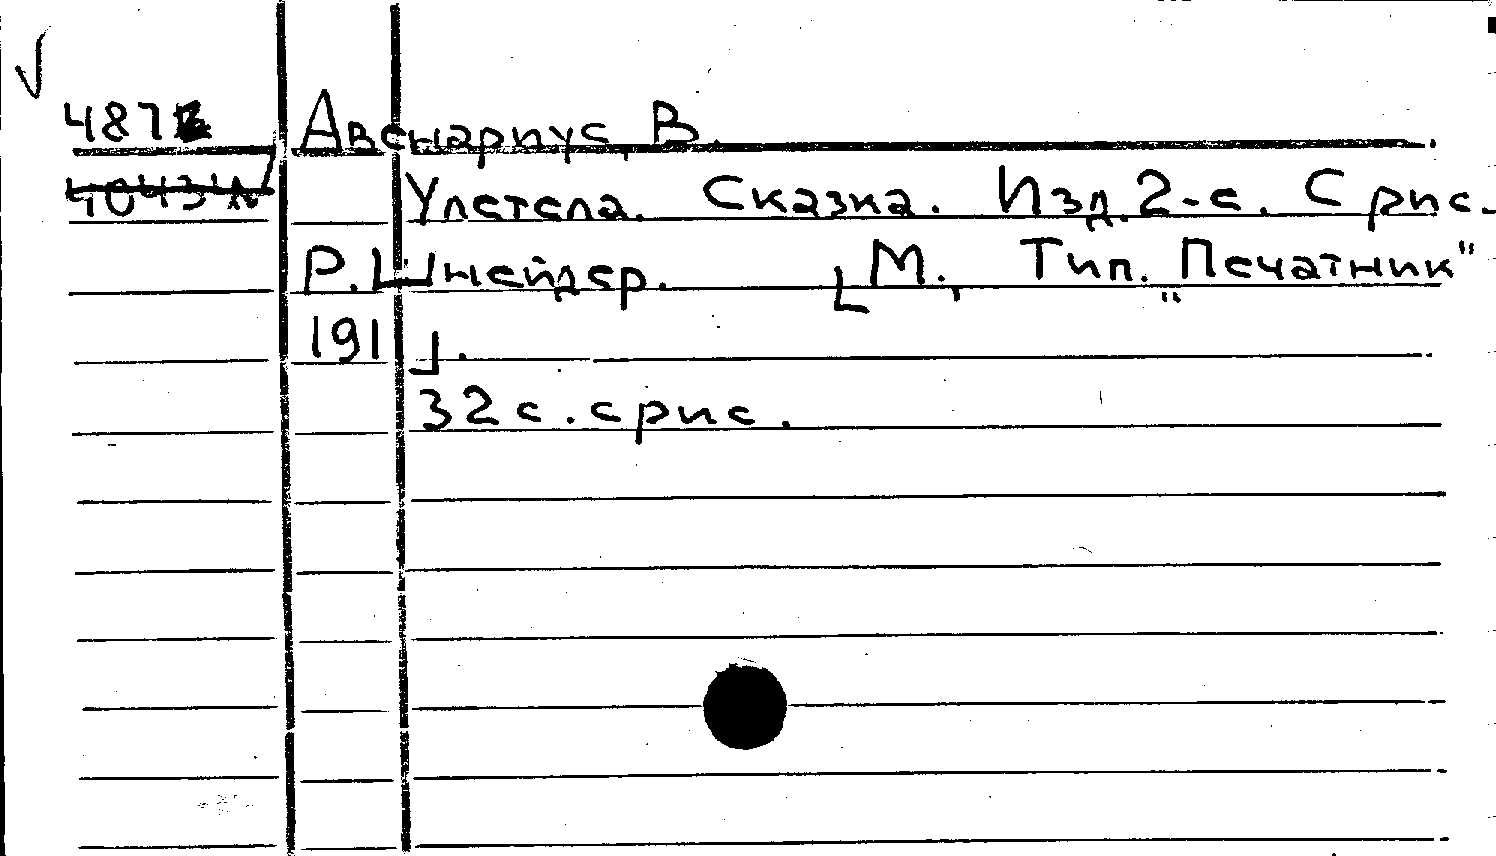 487
Авенариус, В.
Улетела. Сказка. Изд. 2-е. С рис.
Р. Шнейдер. [М., Тип. „Печатник"
191 ].
32 с. с рис.